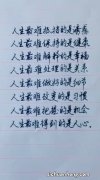 人生最难抵挡的是诱惑
人生最难保持的是健康
人生最难解释的是幸福
人生最难处理的是关系
人生最难做好的是细节
人生最难改变的是习惯
人生最难把握的是机会
人生最难得到的是人心.